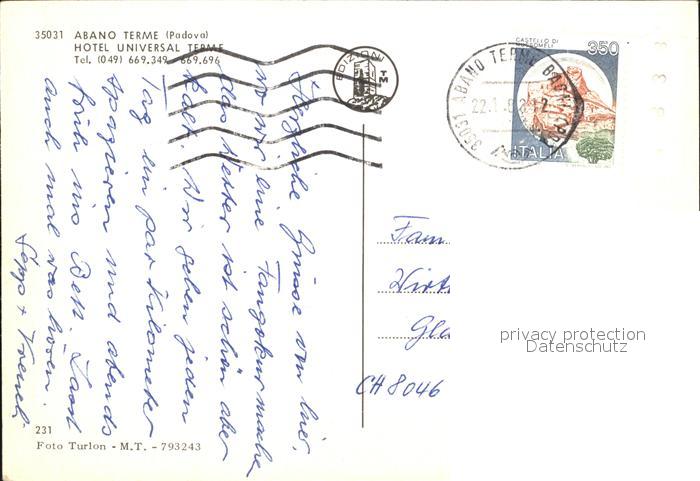 35031 ABANO TERME (Padova)
HOTEL UNIVERSAL TERME
Tel. (049) 669.349 - 669.696
EDIZIONI
TM
CASTELLO DI
350
ITALIA
35031 ABANO TERME
22.1
Herzliche Grüsse von hier,
wo wir eine Fangokur machen
das Wetter ist schön aber
kalt. Wir gehen jeden
Tag ein par Kilometer
spazieren und abends
früh ins Bett. Lasst
auch mal was hören.
Sepp +
Fam
Wirt
Gla
CH 8046
privacy protection
Datenschutz
231
Foto Turlon - M.T. - 793243